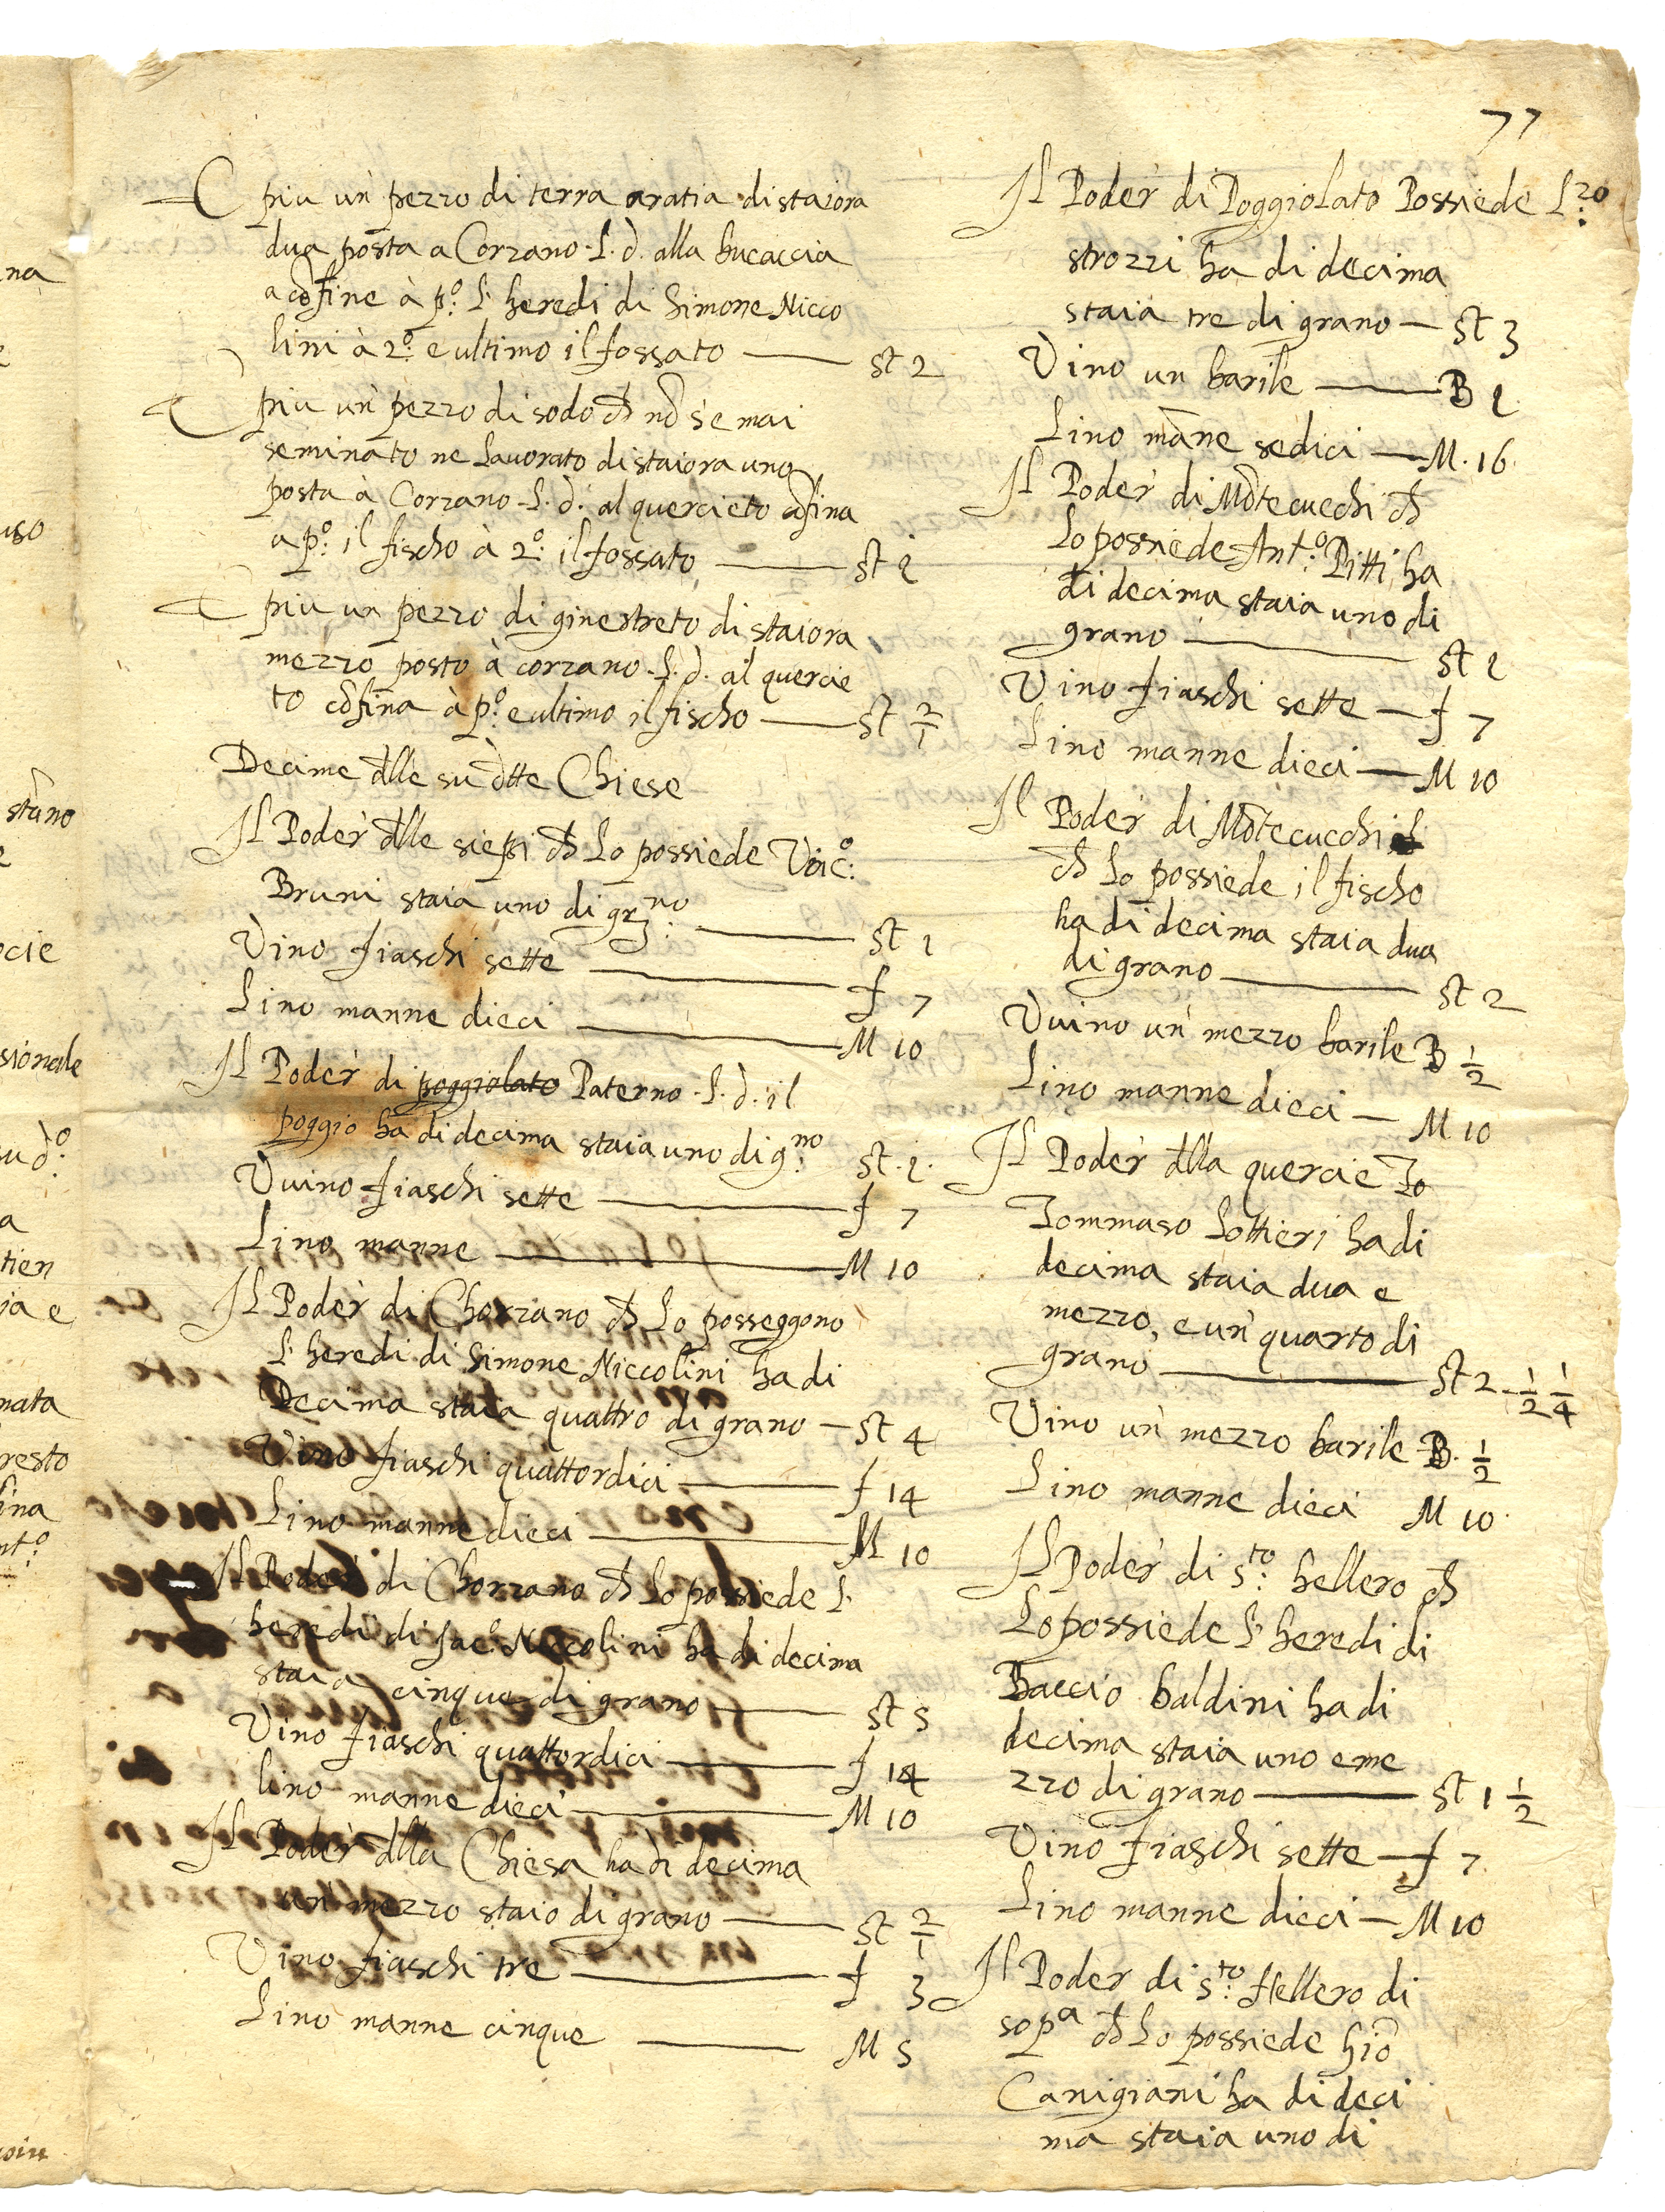 77
E piu un pezzo di terra aratia di staiora
dua posta a Corzano L. d. alla bucaccia
a cõfine à pº: L' heredi di Simone Nicco
lini à 2º: e ultimo il fossato — St 2
E piu un pezzo di sodo ch nõ s'e mai
seminato ne Lavorato di staiora uno
posta à Corzano L. d. al quercieto cõfina
a pº: il fischo à 2º: il fossato — St 1
E piu un pezzo di ginestreto di staiora
mezzo posto à corzano L. d. al quercie
to cõfina à pº: e ultimo il fischo — St 2/1
Decime dlle su dtte Chiese
Il Poder dlle siepi ch Lo possiede Vicº:
Bruni staia uno di grno — St 1
Vino fiaschi sette — f 7
Lino manne dieci — M 10
Il Poder di poggiolato Paterno L. d. il
poggio ha di decima staia uno di gno: St. 1.
Vvino fiaschi sette — f 7
Lino manne — M 10
Il Poder di Chorzano ch Lo posseggono
L' heredi di Simone Niccolini ha di
Decima staia quattro di grano — St 4
Vino fiaschi quattordici — f 14
Lino manne dieci — M 10
Il Poder di Chorzano ch Lo possiede L'
heredi di Jacº: Niccolini ha di decima
staia cinque di grano — St 5
Vino fiaschi quattordici — f 14
lino manne dieci — M 10
Il Poder dlla Chiesa ha di decima
un mezzo staio di grano — St 2/1
Vino fiaschi tre — f 3
Lino manne cinque — M 5
Il Poder di Poggiolato Possiede Lzo:
strozzi ha di decima
staia tre di grano — St 3
Vino un barile — B 1
Lino mãne sedici — M. 16.
Il Poder di Mõtecucchi ch
Lo possiede Antº: Pitti ha
di decima staia uno di
grano — St 1
Vino fiaschi sette — f 7
Lino manne dieci — M 10
Il Poder di Mõtecucchi
ch Lo possiede il fischo
ha di decima staia dua
di grano — St 2
Vvino un mezzo barile B 1/2
Lino manne dieci — M 10
Il Poder dlla quercie Lo
Tommaso Lottieri ha di
decima staia dua e
mezzo, e un quarto di
grano — St 2 1/2 1/4
Vino un mezzo barile B. 1/2
Lino manne dieci M 10
Il Poder di Sto: hellero ch
Lo possiede L' heredi di
Baccio baldini ha di
decima staia uno e me
zzo di grano — St 1 1/2
Vino fiaschi sette — f 7
Lino manne dieci — M 10
Il Poder di Sto: Hellero di
sopa ch Lo possiede Giõ
Canigiani ha di deci
ma staia uno di